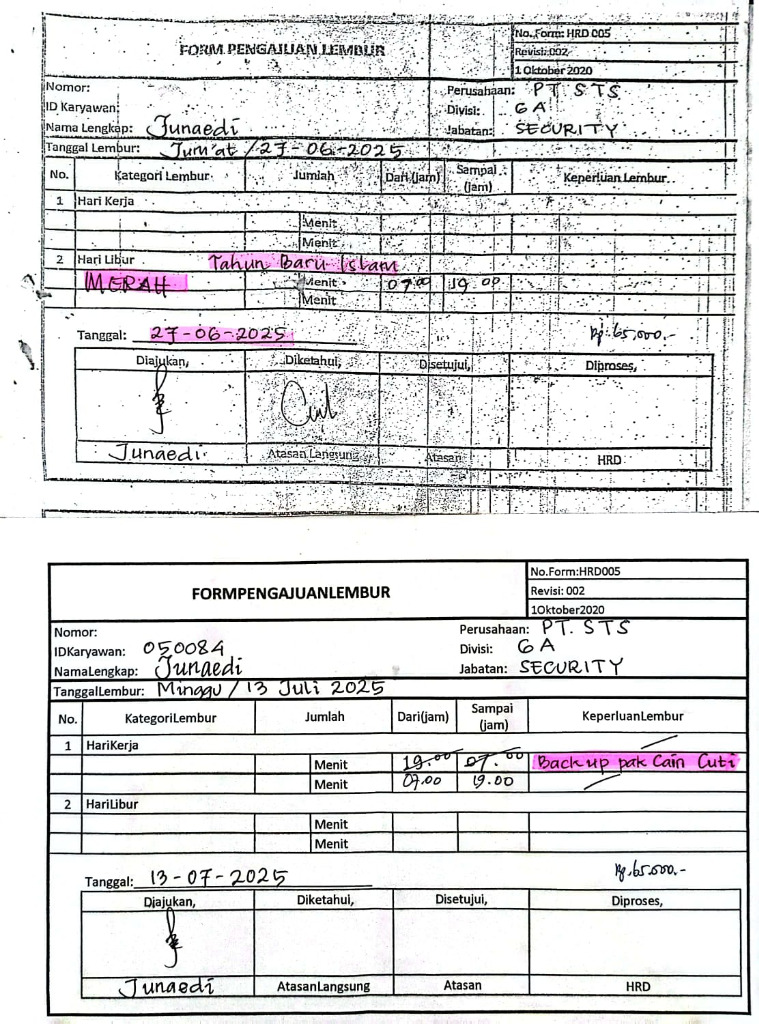 FORM PENGAJUAN LEMBUR
No. Form: HRD 005
Revisi: 002
1 Oktober 2020
Nomor:
Perusahaan: PT STS
ID Karyawan:
Divisi: GA
Nama Lengkap: Junaedi
Jabatan: SECURITY
Tanggal Lembur: Jum'at / 27-06-2025
No. Kategori Lembur Jumlah Dari (jam) Sampai (jam) Keperluan Lembur
1 Hari Kerja
Menit
Menit
2 Hari Libur Tahun Baru Islam
MERAH Menit 07.00 19.00
Menit
Tanggal: 27-06-2025 Rp. 65,000.-
Diajukan, Diketahui, Disetujui, Diproses,
Junaedi Atasan Langsung Atasan HRD
FORMPENGAJUANLEMBUR
No.Form:HRD005
Revisi: 002
1Oktober2020
Nomor:
Perusahaan: PT. STS
IDKaryawan: 050084
Divisi: GA
NamaLengkap: Junaedi
Jabatan: SECURITY
TanggalLembur: Minggu / 13 Juli 2025
No. KategoriLembur Jumlah Dari(jam) Sampai (jam) KeperluanLembur
1 HariKerja
Menit 19.00 07.00 Back up pak Cain Cuti
Menit 07.00 19.00
2 HariLibur
Menit
Menit
Tanggal: 13-07-2025 Rp. 65.000.-
Diajukan, Diketahui, Disetujui, Diproses,
Junaedi AtasanLangsung Atasan HRD